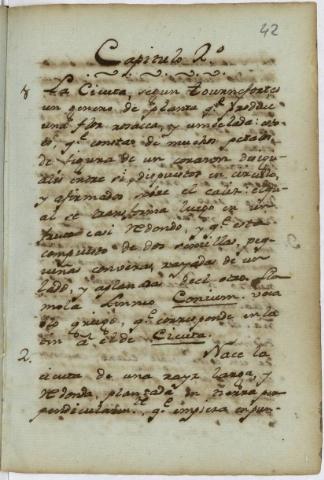 42
Capitulo 2.º
La Cicuta, segun Tournefort es
un genero de planta q.e produce
una flor rosacea, y umbelada: esto
es, q.e consta de muchos petalos
de figura de un corazon desigu-
ales entre si, dispuestos en circulo,
y afirmados sobre el caliz: el qu-
al se transforma luego en un
fruto casi redondo, y q.e esta
compuesto de dos semillas, peq-
ueñas convexas, rayadas de un
lado, y aplanadas del otro. lla-
mola Linneo Conium. voca
blo griego, q.e corresponde en la-
tin al de Cicuta.
2. Nace la
cicuta de una rayz larga, y
redonda, plantada en tierra per-
pendicularm.te q.e empieza en pun-